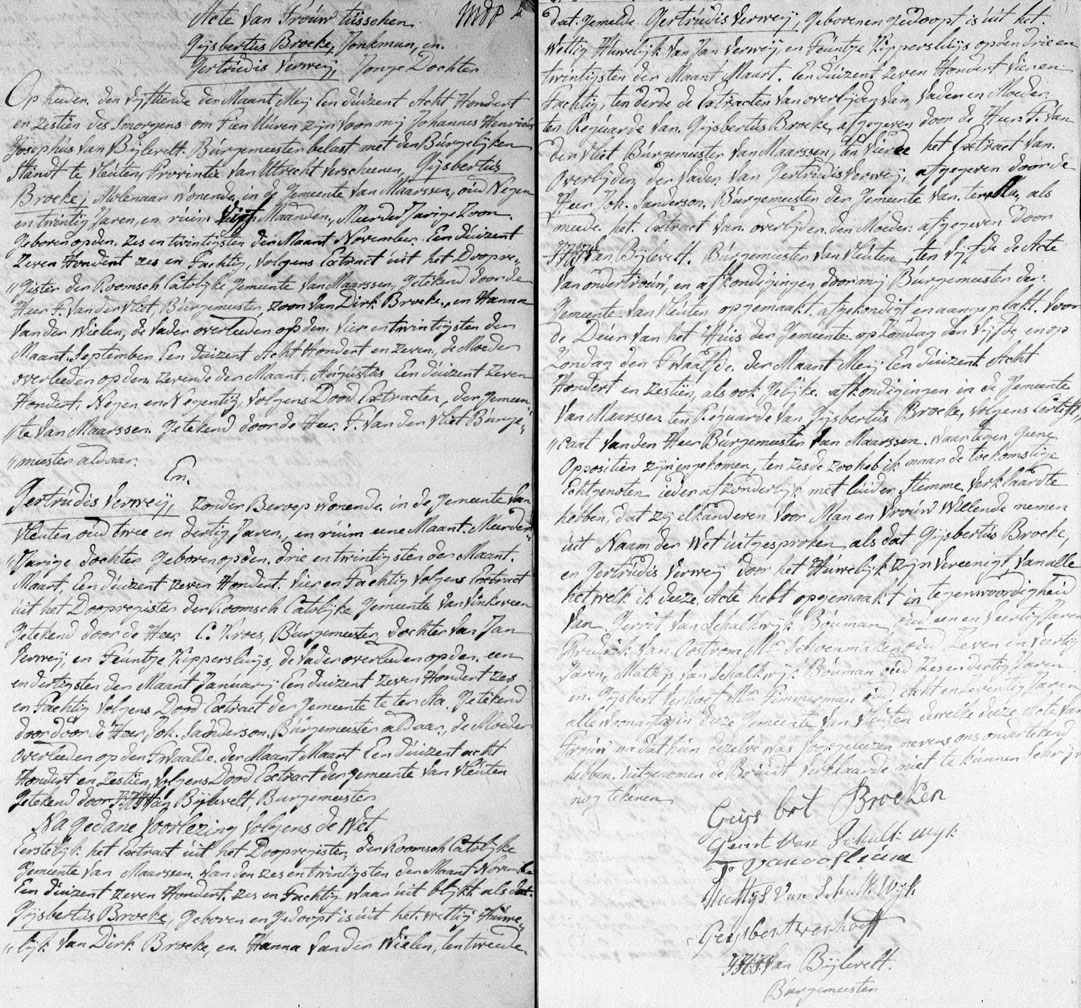 Acte van Trouw tusschen
Gijsbertus Broeke, Jonkman, en
Gertrudis Verweij, Jonge Dochter
Op heden den vijftiende der Maant Meij Een duizent Acht Hondert
en zestien des smorgens om tien Uuren zijn voor mij Johannes Henricus
Josophus van Bijlevelt. Burgemeester belast met den Burgelijken
Standt te Vleuten, Provintie van Utrecht verscheenen, Gijsbertus
Broeke, Molenaar wonende, in de Gemeente van Maarssen, oud Negen
en twintig Jaren, en ruim vijf Maanden, Meerder Jarige Zoon
geboren op den zes en twintigsten der Maant November Een duizent
Zeven Hondert zes en Tachtig, volgens Extract uit het Doopre„
„gister der Roomsch Catolijke gemeente van Maarssen, getekend door de
Heer F. van der Vliet Burgemeester, Zoon van Dirk Broeke, en Hanna
van der Wielen, de vader overleeden op den vier en twintigsten der
Maant September Een duizent Acht Hondert en zeven, de Moeder
overleeden op den zevende der Maant Augustus Een duizent zeven
Hondert Negen en Negentig volgens Dood Extracten, der gemeen„
„te van Maarssen getekend door de Heer F. van der Vliet Burge„
„meester aldaar.
En.
Gertrudis Verweij, zonder Beroep wonende in de gemeente van
Vleuten, oud twee en dertig Jaren, en ruim eene Maant Meerder
Jarige dochter geboren op den, drie en twintigsten der Maant
Maart, Een duizent zeven Hondert Vier en Tachtig volgens Extract
uit het Doopregister der Roomsch Catolijke gemeente van Vinkeveen
getekend door de Heer C. Kroes, Burgemeester, dochter van Jan
Verweij, en Teuntje Kippersluijs, de vader overleeden op den een
en dertigsten der Maant Januarij Een duizent zeven Hondert zes
en Tachtig volgens Dood Extract der gemeente te ter Aa, getekend
door de Heer Joh. Sanderson. Burgemeester aldaar, de Moeder
overleeden op den Twaalde, der Maant Maart Een duizent acht
Hondert en zestien, volgens Dood Extract der gemeente van Vleuten
getekend door J.H.J. van Bijlevelt. Burgemeester
Na gedane voorlezing volgens de Wet
Eerstelijk het Extract uit het Doopregister, der Roomsch Catolijke
Gemeente van Maarssen van den zes en twintigsten der Maant November
Een duizent zeven Hondert zes en Tachtig waar uit blijkt als dat
Gijsbertus Broeke, geboren en gedoopt is uit het wettig Huwe„
„lijk van Dirk Broeke, en Hanna van der Wielen, ten tweede
dat gemelde Gertrudis Verweij, geboren en gedoopt is uit het
Wettig Huwelijk van Jan Verweij, en Teuntje Kippersluijs op den drie en
twintigsten der Maant Maart Een duizent zeven Hondert vier en
Tachtig, ten derde de Extracten van overlijden van vader en Moeder
ten Reguarde van Gijsbertus Broeke, afgegeven door de Heer F. van
der Vliet Burgemeester van Maarssen, ten vierde het Extract van
Overlijden, der vader van Gertrudis Verweij, afgegeven door de
Heer Joh. Sanderson, Burgemeester der Gemeente van ter Aa, als
meede het Extract van overlijden der Moeder afgegeven door
J.H.J. van Bijlevelt. Burgemeester van Vleuten, ten vijfde de Acte
van ondertrouw, en afkondigingen door mij Burgemeester der
Gemeente van Vleuten opgemaakt, afgekondigt en aangeplakt voor
de Deur van het Huis der Gemeente op Zondag den vijfde en op
Zondag den Twaalfde, der Maant Meij Een duizent Acht
Hondert en zestien, als ook gelijke afkondigingen in de gemeente
van Maarssen ten Reguarde van Gijsbertus Broeke, volgens Certifi„
„caat van den Heer Burgemeester van Maarssen, waar tegen geene
Oppositien zijn ingekomen, ten zesde zoo heb ik naar de toekomstige
Echtgenoten ieder afzonderlijk met luider stemme verklaarde
hebben, dat zij elkanderen voor Man en Vrouw Willende nemen
uit Naam der Wet uitgesproken als dat Gijsbertus Broeke,
en Gertrudis Verweij door het Huwelijk zijn vereenigt van alle
het welk ik deeze Acte hebt opgemaakt in tegenwoordigheid
van Gerrit van Schalkwijk Bouman oud een en veertig Jaren
Fredrik van Oostrom Mr Schoenmaker oud Zeven en veertig
Jaren, Mathijs van Schalkwijk Bouman oud zes en dertig Jaren
en Gijsbert Verhoef Mr Timmerman oud acht en zeventig Jaren
alle woonagtig in deeze Gemeente van Vleuten dewelke deeze Acte van
Trouw na dat hun dezelve was voorgeleezen nevens ons ondertekend
hebben. uitgenomen de Bruid verklaarde niet te kunnen schrijven
nog tekenen
Guijs bert Broeken
Gerrit van Schalkwijk
F van oostrum
Mathijs van Schalkwijk
Geijsbert verhoeff
J.H.J. van Bijlevelt.
Burgemeester